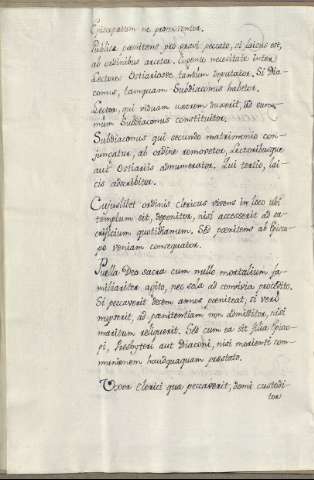 Episcopatum ne promoventor.
Publica paenitens pro gravi peccato, si laicus est,
ab ordinibus arcetor. Urgente necesitate inter
Lectores Ostiariosve tantum deputator. Si Dia-
conus, tamquam Subdiaconus habetor.
Lector, qui viduam uxorem duxerit, ad
mum Subdiaconus constituitor.
Subdiaconus qui secundo matrimonio con-
jungatur, ab ordine removetor, Lectoribusque
aut Ostiariis adnumerator. Qui tertio, lai-
cis adscribitor.
Cujuslibet ordinis clericus vivens in loco ubi
templum sit, deponitor, nisi accesserit ad sa-
crificium quotidianum. Sed paenitens ab Episco-
po veniam consequator.
Puella Deo sacra cum nullo mortalium fa-
miliariter agito, nec sola ad convivia procedito.
Si peccaverit decem annos paeniteat, si vero
nupserit, ad paenitentiam non admittitor, nisi
maritum reliquerit. Sed cum ea sit filia Episco-
pi, Presbyteri aut Diaconi, nisi morienti com-
munionem haudquaquam prestato.
Uxor Clerici quae peccaverit, domi custodi-
tor